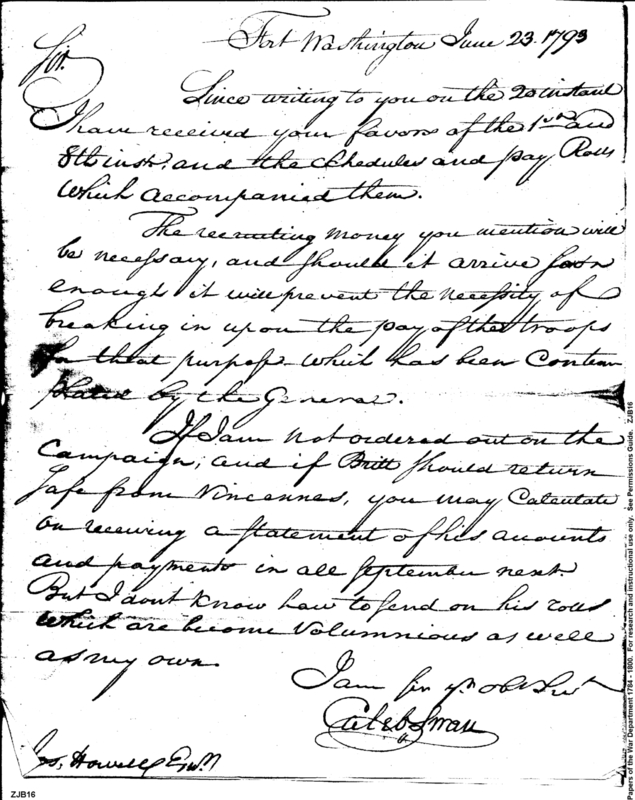 Fort Washington June 23. 1793
Sir.
Since writing to you on the 20 instant
I have received your favors of the 1st and
8th inst. and the schedules and pay Rolls
which accompanied them.
The recruiting money you mention will
be necessary, and should it arrive soon
enough it will prevent the necessity of
breaking in upon the pay of the troops
for that purpose which has been Contem
plated by the General.
If I am not ordered out on the
Campaign, and if Britt should return
safe from Vincennes, you may Calculate
on receiving a statement of his accounts
and payments in all September next.
But I dont know how to send on his rolls
which are become Volumnious as well
as my own.
I am Sir yr obt Servt
Caleb Swan
Jos. Howell Esqr
ZJB16
Papers of the War Department 1784 - 1800. For research and instructional use only. See Permissions Guide. ZJB16